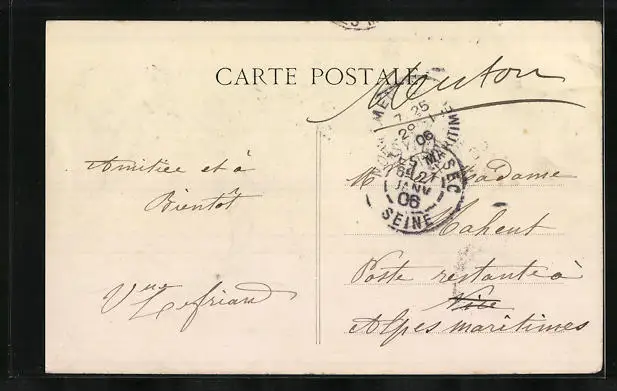 CARTE POSTALE
Menton
Amitiée et à
Bientôt
Vve Lefriand
M Madame
Mahent
Poste restante à
Nice
Alpes maritimes
7 25
06
MARITIME
SEC
21
JANV
06
SEINE